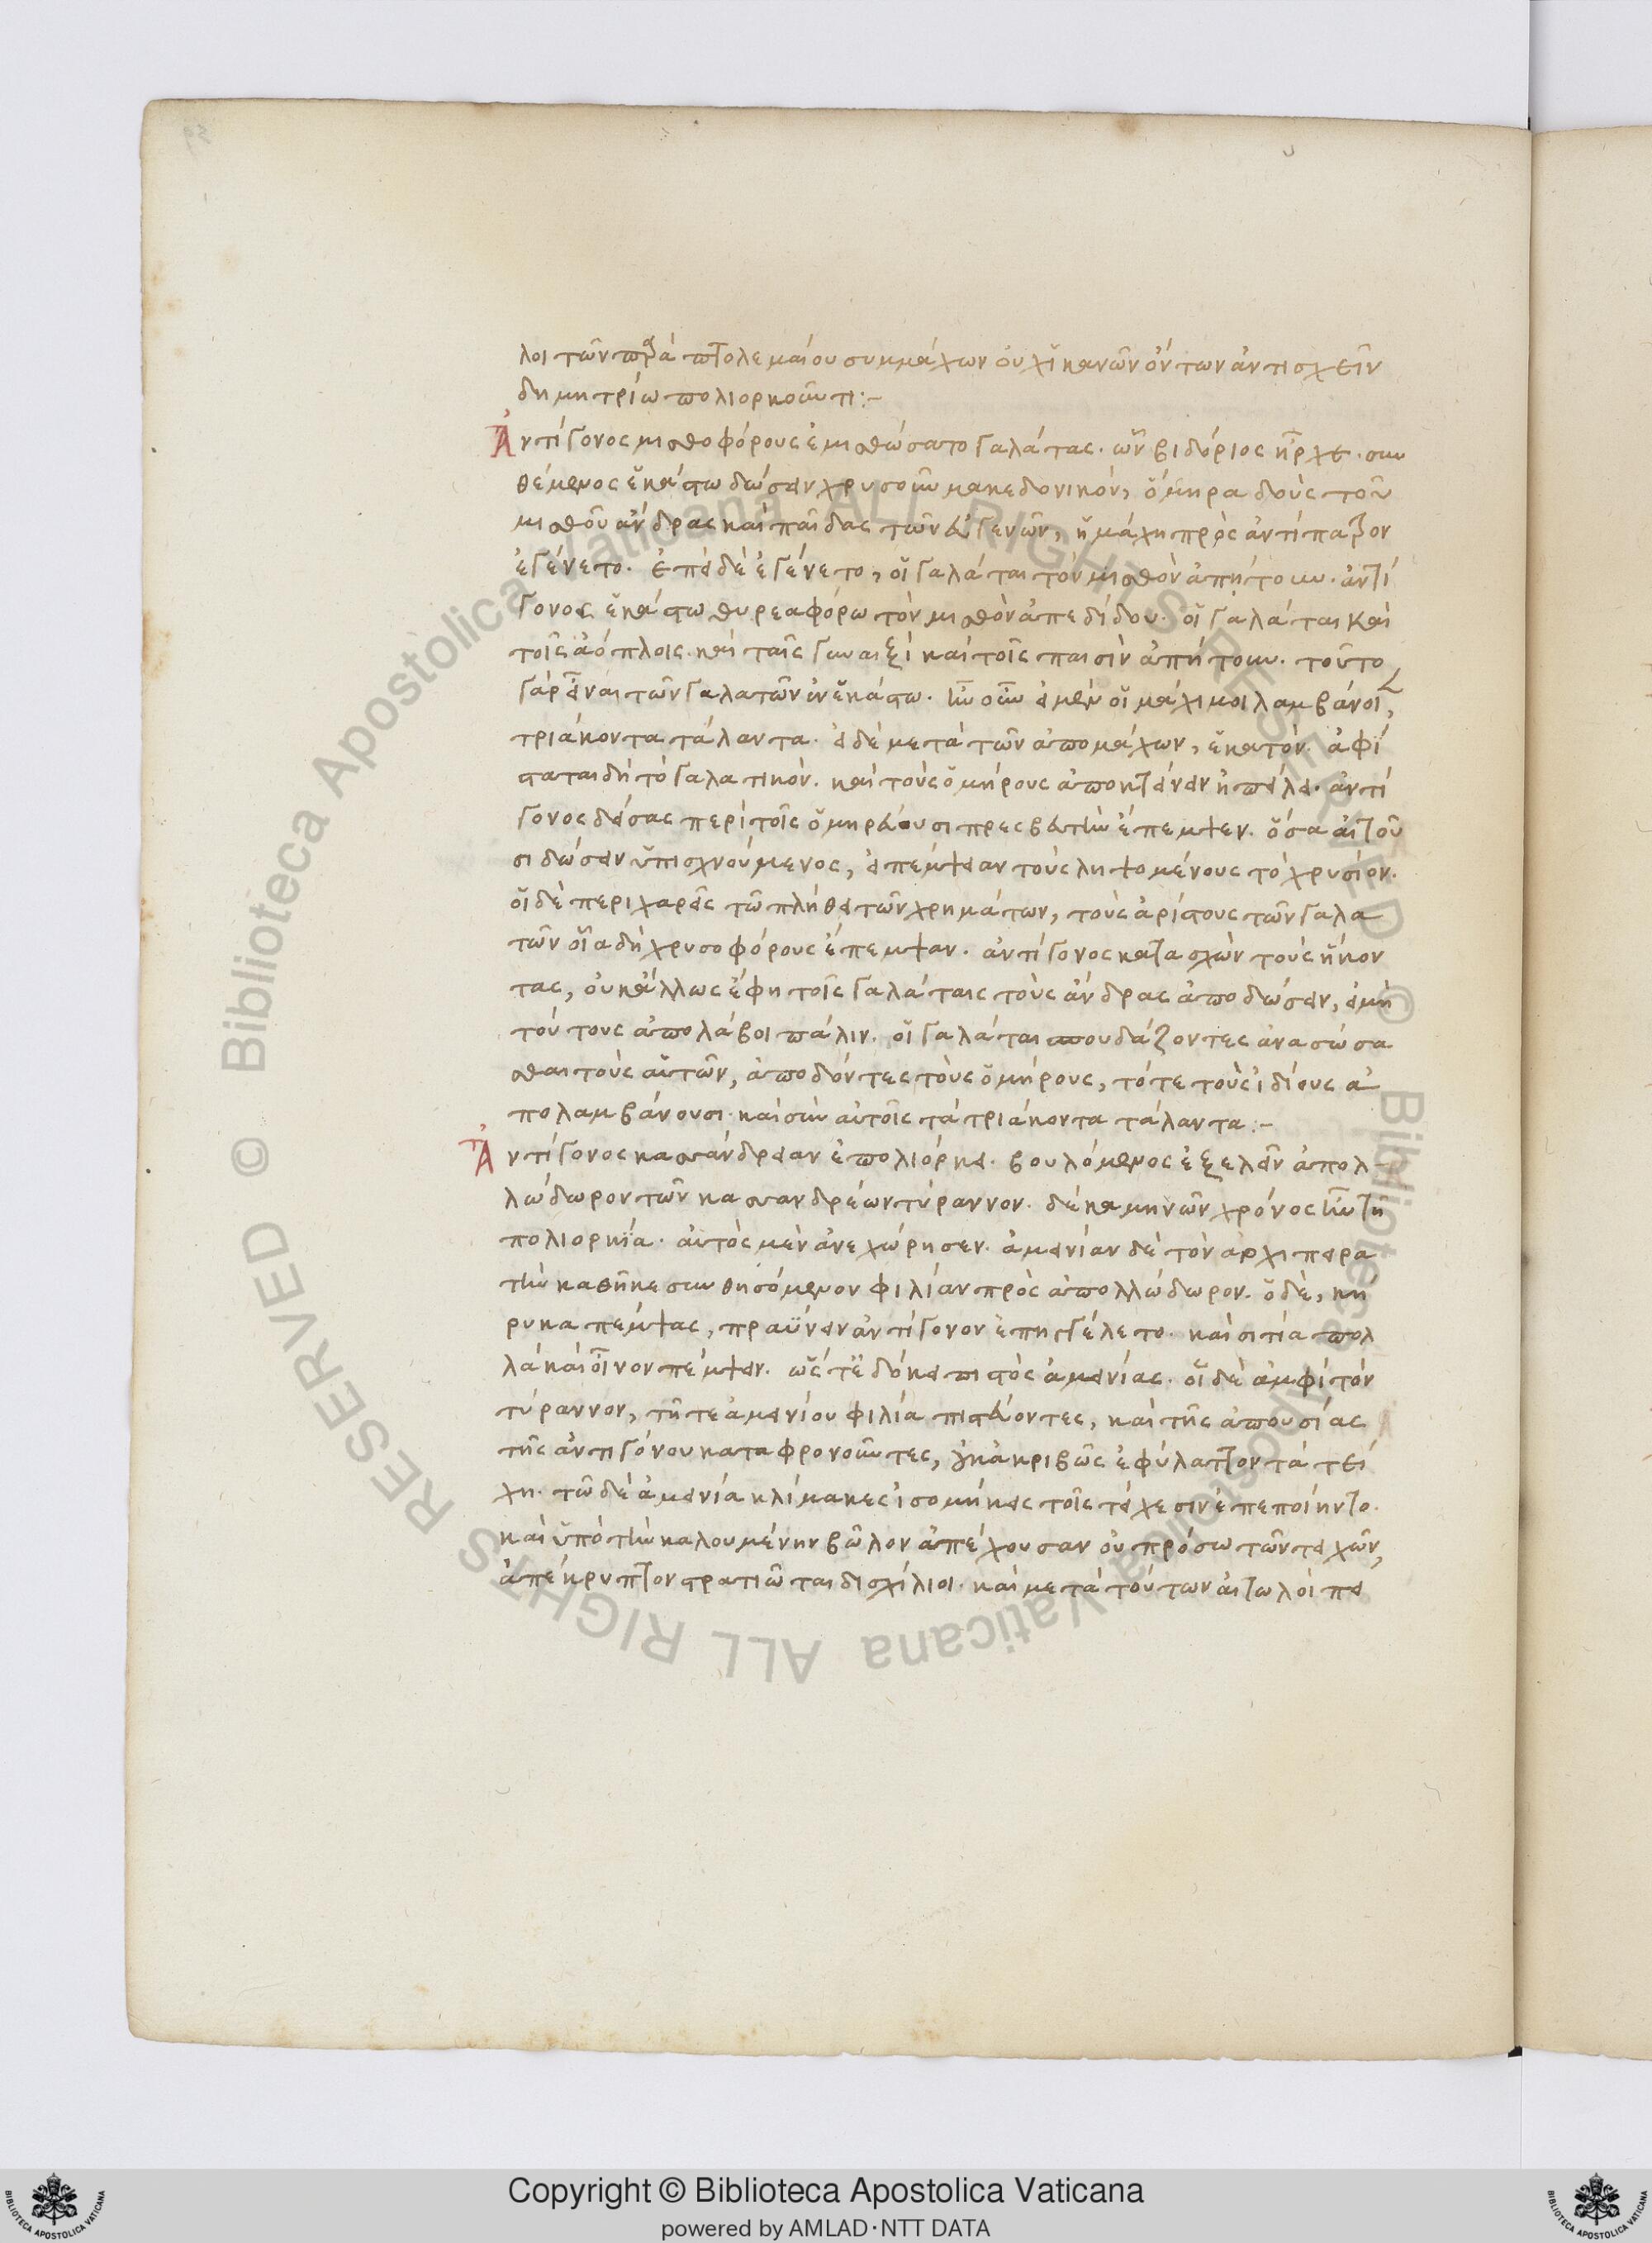 λοι τῶν παρὰ πτολεμαίου συμμάχων οὐχ ἱκανῶν ὄντων ἀντισχεῖν
δημητρίω πολιορκοῦντι:-
Ἀντίγονος μισθοφόρους ἐμισθώσατο γαλάτας. ὧν βιδόριος ἦρχε. συν
θέμενος ἑκάστω δώσειν χρυσοῦν μακεδονικόν, ὅμηρα δοὺς τοῦ
μισθοῦ ἄνδρας καὶ παῖδας τῶν εὐγενῶν, ἡ μάχη πρὸς ἀντίπατρον
ἐγένετο. ἐπεὶ δὲ ἐγένετο, οἱ γαλάται τὸν μισθὸν ἀπήτουν. ἀντί
γονος ἑκάστω θυρεαφόρω τὸν μισθὸν ἀπεδίδου. οἱ γαλάται καὶ
τοῖς ἀόπλοις. καὶ ταῖς γυναιξὶ καὶ τοῖς παισὶν ἀπήτουν. τοῦτο
γὰρ εἶναι τῶν γαλατῶν ἑκάστω. ἦν οὖν εἰ μὲν οἱ μάχιμοι λαμβάνοιεν,
τριάκοντα τάλαντα. εἰ δὲ μετὰ τῶν ἀπομάχων, ἑκατόν. ἀφί
σταται δὴ τὸ γαλατικόν. καὶ τοὺς ὁμήρους ἀποκτείνειν ἠπείλει. ἀντί
γονος δείσας περὶ τοῖς ὁμηρεύουσι πρεσβευτὴν ἔπεμψεν. ὅσα αἰτοῦ
σι δώσειν ὑπισχνούμενος, εἰ πέμψειαν τοὺς ληψομένους τὸ χρυσίον.
οἱ δὲ περιχαρεῖς τῶ πλήθει τῶν χρημάτων, τοὺς ἀρίστους τῶν γαλα
τῶν οἷα δὴ χρυσοφόρους ἔπεμψαν. ἀντίγονος κατασχὼν τοὺς ἥκον
τας, οὐκ ἄλλως ἔφη τοῖς γαλάταις τοὺς ἄνδρας ἀποδώσειν, εἰ μὴ
τούτους ἀπολάβοι πάλιν. οἱ γαλάται σπουδάζοντες ἀνασώσα
σθαι τοὺς αὑτῶν, ἀποδόντες τοὺς ὁμήρους, τότε τοὺς ἰδίους ἀ
πολαμβάνουσι. καὶ σὺν αὐτοῖς τὰ τριάκοντα τάλαντα:-
Ἀντίγονος κασάνδρειαν ἐπολιόρκει. βουλόμενος ἐξελεῖν ἀπολ-
λώδωρον τῶν κασανδρέων τύραννον. δέκα μηνῶν χρόνος ἦν τῆ
πολιορκία. αὐτὸς μὲν ἀνεχώρησεν. ἀμεινίαν δὲ τὸν ἀρχιπειρα
τὴν καθῆκε συνθησόμενον φιλίαν πρὸς ἀπολλώδωρον. ὁ δὲ, κή
ρυκα πέμψας, πραΰνειν ἀντίγονον ἐπηγγέλετο. καὶ σιτία πολ
λὰ καὶ οἶνον πέμψειν. ὥστε ἐδόκει πιστὸς ἀμεινίας. οἱ δὲ ἀμφὶ τὸν
τύραννον, τῆ τε ἀμεινίου φιλία πιστεύοντες, καὶ τῆς ἀπουσίας
τῆς ἀντιγόνου καταφρονοῦντες, οὐκ ἀκριβῶς ἐφύλαττον τὰ τεί
χη. τῶ δὲ ἀμεινία κλίμακες ἰσομήκεις τοῖς τείχεσιν ἐπεποίηντο.
καὶ ὑπὸ τὴν καλουμένην βῶλον ἀπέχουσαν οὐ πρόσω τῶν τειχῶν,
ἀπεκρύπτοντο στρατιῶται δισχίλιοι. καὶ μετὰ τούτων αἰτωλοὶ πει
Copyright © Biblioteca Apostolica Vaticana
powered by AMLAD·NTT DATA